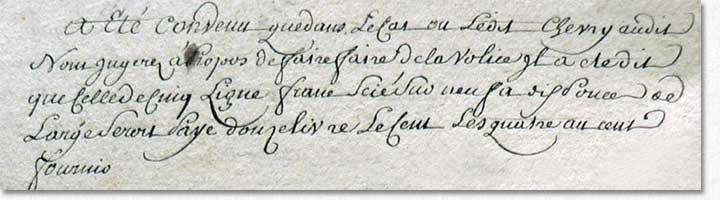 a Eté convenu que dans Le Cas ou Ledit Chevry audit
Nom jugera à Propos de faire faire de la volice yl a eté dit
que Celle de Cinq Ligne franc Scié Sur neuf a dix Pouce de
Large Seroit Payé douze livre Le Cent Les quatre au Cent
fournis